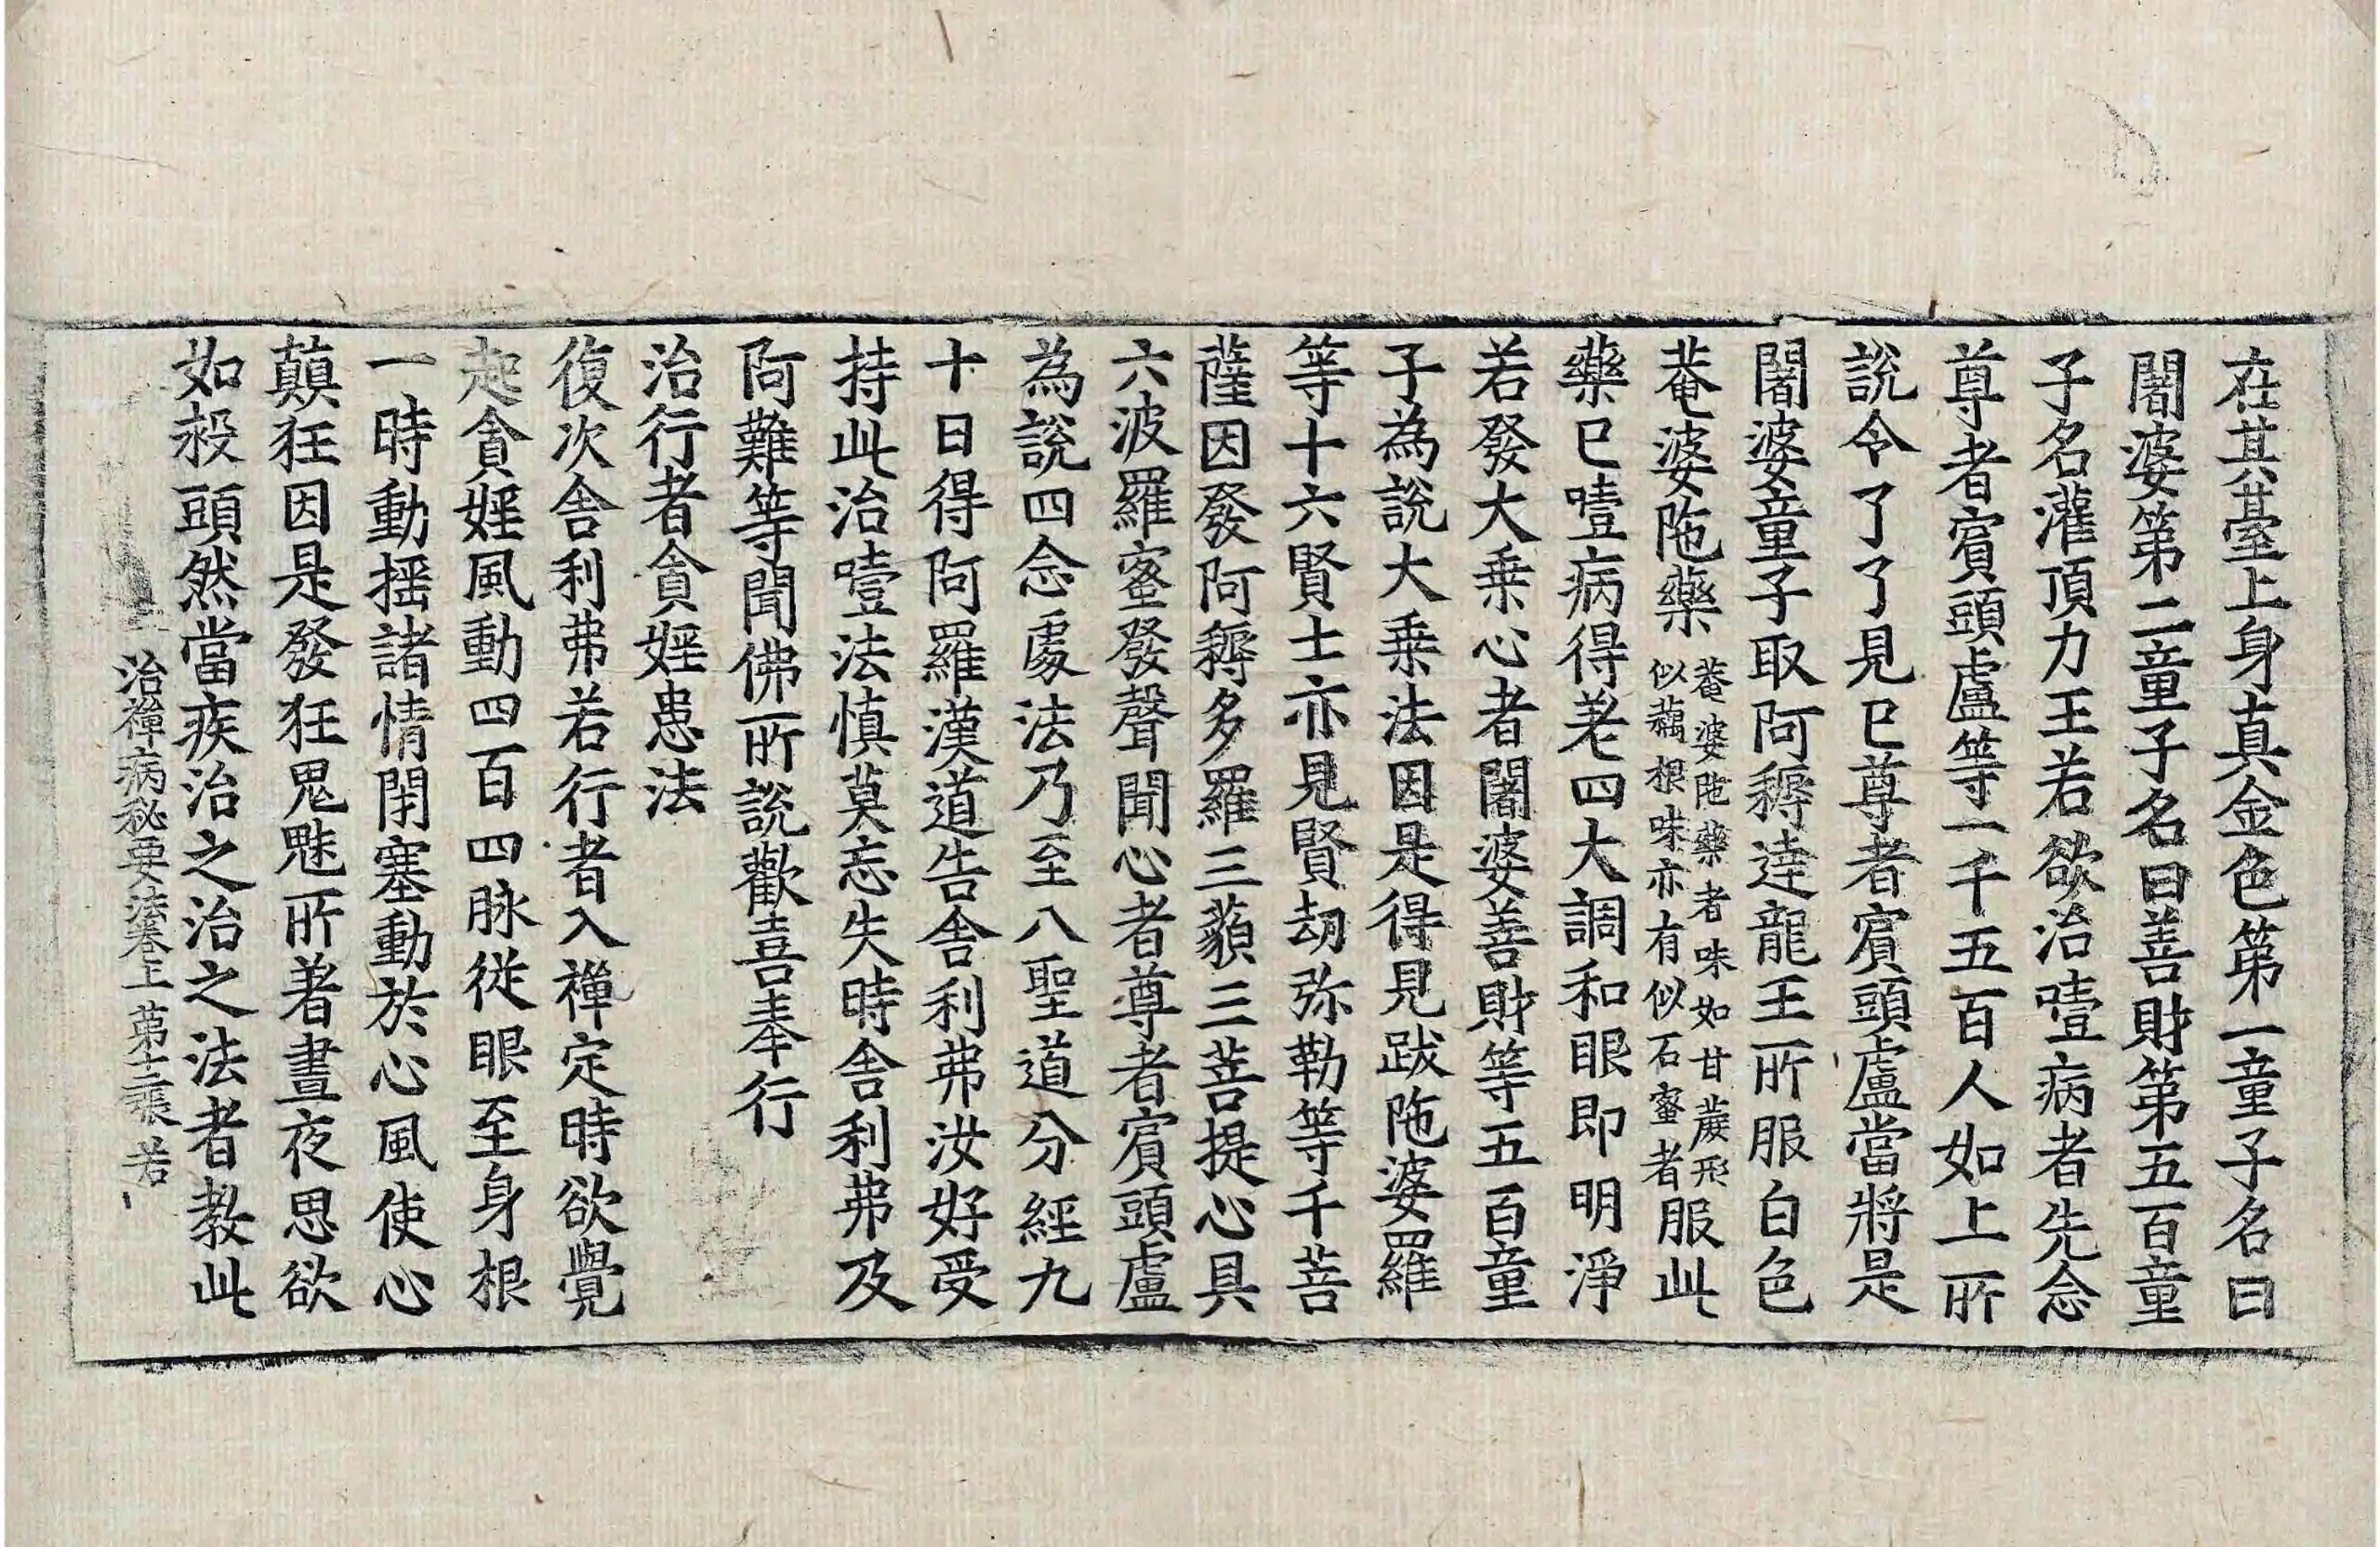 在其臺上身真金色第一童子名曰
闍婆第二童子名曰善財第五百童
子名灌頂力王若欲治噎病者先念
尊者賓頭盧等一千五百人如上所
說令了了見已尊者賓頭盧當將是
闍婆童子取阿耨達龍王所服白色
菴婆陁藥菴婆陁藥者味如甘蔗形似藕根味亦有似石蜜者服此
藥已噎病得差四大調和眼即明淨
若發大乘心者闍婆善財等五百童
子為說大乘法因是得見跋陁婆羅
等十六賢士亦見賢劫弥勒等千菩
薩因發阿耨多羅三藐三菩提心具
六波羅蜜發聲聞心者尊者賓頭盧
為說四念處法乃至八聖道分經九
十日得阿羅漢道告舍利弗汝好受
持此治噎法慎莫忘失時舍利弗及
阿難等聞佛所說歡喜奉行
治行者貪婬患法
復次舍利弗若行者入禪定時欲覺
起貪婬風動四百四脉從眼至身根
一時動搖諸情閉塞動於心風使心
顛狂因是發狂鬼魅所著晝夜思欲
如救頭然當疾治之治之法者教此
治禪病秘要法卷上 第十二張 若